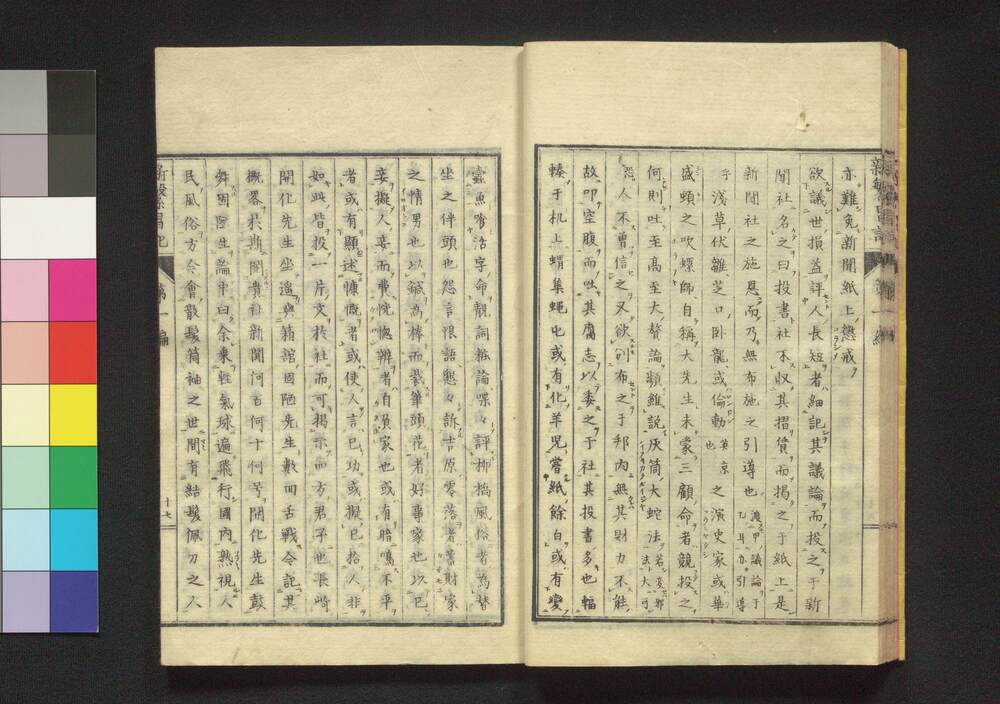 亦難免新聞紙上懲戒
欲議世損益評人長短者細記其議論而投之于新
聞社名之曰投書社不収其摺賃而揭之于紙上是
新聞社之施恩而乃無布施之引導也渡甲議論于乙耳亦引導
乎淺草伏雛芝口臥龍或倫動英京也之演史家或華
盛頓之吹螺師自稱大先生未蒙三顧命者競投之
何則吐至高至大贅論頻雖說灰筒大蛇法
人不曾信之又欲刷布之于邦內無其財力不能
故叩空腹而吐其腐志以委之于社其投書多也輻
輳于机上蝟集蠅屯或有化羊兒嘗紙餘白或有變
蠹魚嘗活字命靚詞粧論喋々評柳橋風俗者為替
坐之伴頭也怨言恨語懇々訴吉原零落者蕩財家
之情男也以鍼為棒而載筆頭花者好事家也以己
妾擬人妾而費恍惚辨者自負家也或有暗鳴不平
者或有顯述慷慨者或使人言己功或擬己拾人非
如此皆投一片文於社而可揭示四方君子也張崎
開化先生坐遙與箱館固陋先生數回舌戰今記其
概畧於斯聞貴社新聞何百何十何号開化先生鼓
舞固陋生論中曰余乘輕氣球遍飛行國內熟視人
民風俗方今會散髮筒袖之世間有結髮佩刀之人
新繁昌記
第一編
十七